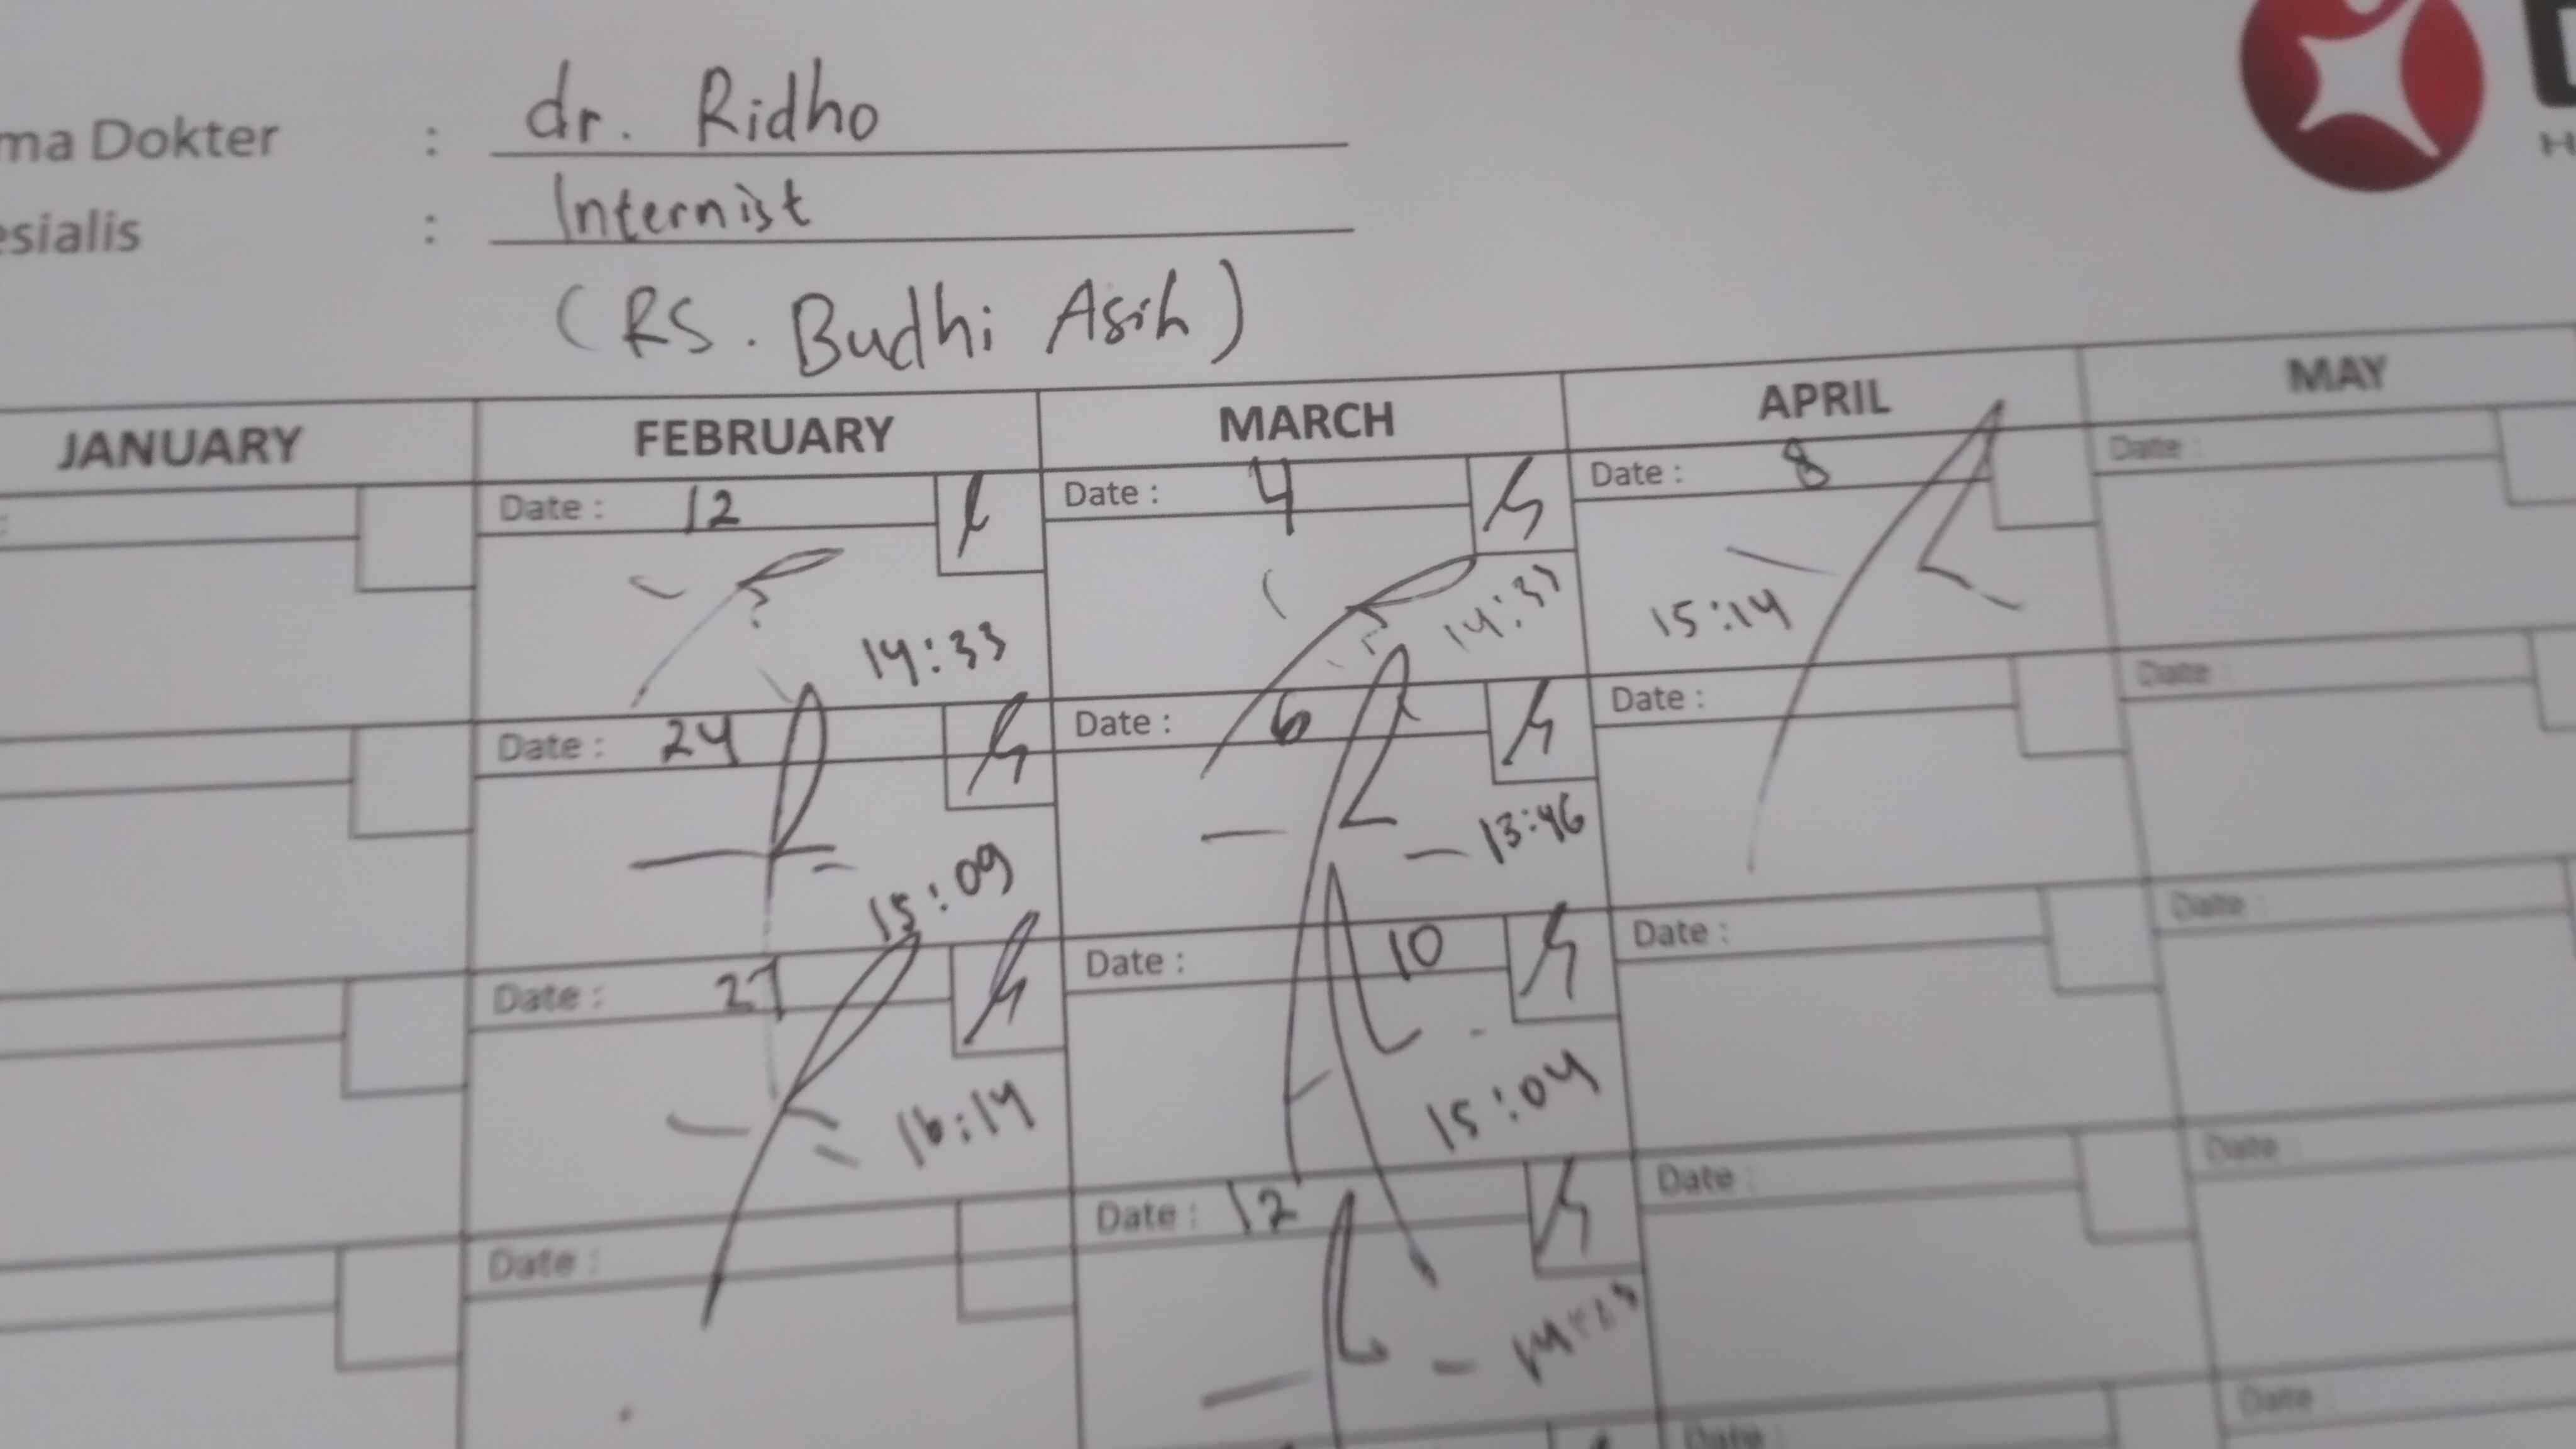 dr. Ridho
Dokter :
Internist
:
(RS. Budhi Asih)
JANUARY FEBRUARY MARCH APRIL MAY
Date : 12 Date : 4 Date : 8 Date :
14:33 15:14
Date : 24 Date : 6 Date : Date :
15:09 13:46
Date : 27 Date : 10 Date : Date :
16:14 15:04
Date : Date : 12 Date : Date :
Date : Date :